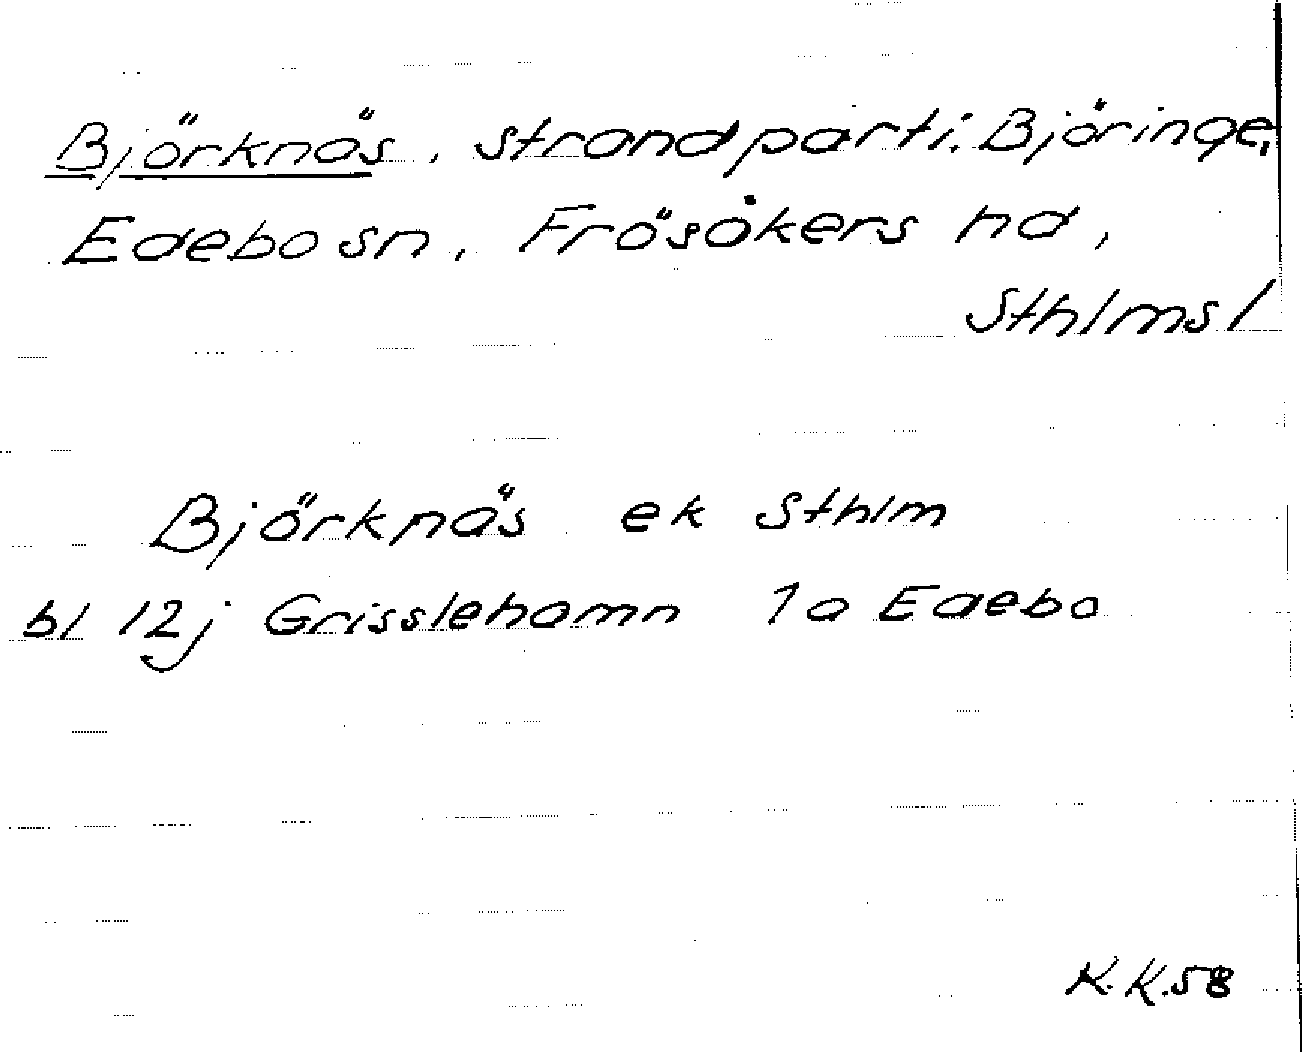 Björknäs, strandparti, Björinge,
Edebo sn, Frösåkers hd,
Sthlms l
Björknäs ek Sthlm
bl 12j Grisslehamn 1a Edebo
K.K.58